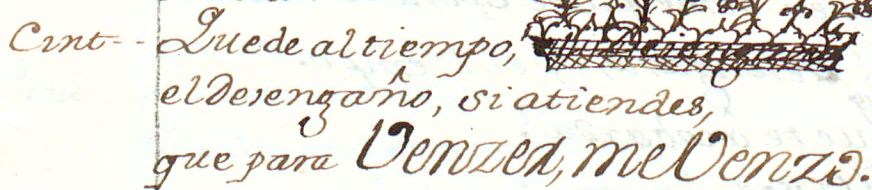 Cint-- Quede al tiempo,
el Desengaño, si atiendes,
que para Venzer, me Venzo.